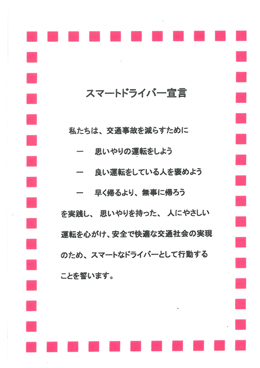 スマートドライバー宣言
私たちは、交通事故を減らすために
ー 思いやりの運転をしよう
ー 良い運転をしている人を褒めよう
ー 早く帰るより、無事に帰ろう
を実践し、思いやりを持った、人にやさしい
運転を心がけ、安全で快適な交通社会の実現
のため、スマートなドライバーとして行動する
ことを誓います。